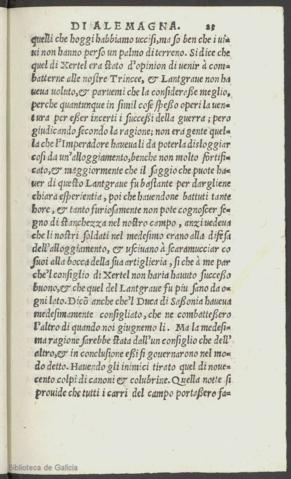 DI ALEMAGNA. 23
quelli che hoggi habbiamo uccisi, ma so ben che i ui-
ui non hanno perso un palmo di terreno. Si dice che
quel di Xertel era stato d'opinion di uenir à com-
batterne alle nostre Trincee, & Lantgraue non ha
ueua voluto, & paruemi che la considerasse meglio,
perche quantunque in simil cose spesso operi la uen-
tura per esser incerti i successi della guerra; pero
giudicando secondo la ragione; non era gente quel-
la che l'Imperadore haueua li da poterla disloggiar
cosi da un'alloggiamento, benche non molto fortifi-
cato, & maggiormente che il saggio che puote ha-
uer di questo Lantgraue fu bastante per dargliene
chiara esperientia, poi che hauendone battuti tante
hore, & tanto furiosamente non pote cognoscer se-
gno di stanchezza nel nostro campo, anzi uedeua
che li nostri soldati nel medesimo erano alla difesa
dell'alloggiamento, & usciuano à scaramucciar co
suoi alla bocca della sua artiglieria, si che à me par
che'l consiglio di Xertel non haria hauuto successo
buono, & che quel del Lantgraue fu piu sano da o-
gni lato. Dicò anche che'l Duca di Sassonia haueua
medesimamente consigliato, che ne combattessero
l'altro di quando noi giugnemo li. Ma la medesi-
ma ragione sarebbe stata dall'un consiglio che dell'
altro, & in conclusione essi si gouernarono nel mo-
do detto. Hauendo gli inimici tirato quel di noue-
cento colpi di canoni & colubrine. Quella notte si
prouide che tutti i carri del campo portassero fa-
Biblioteca de Galicia